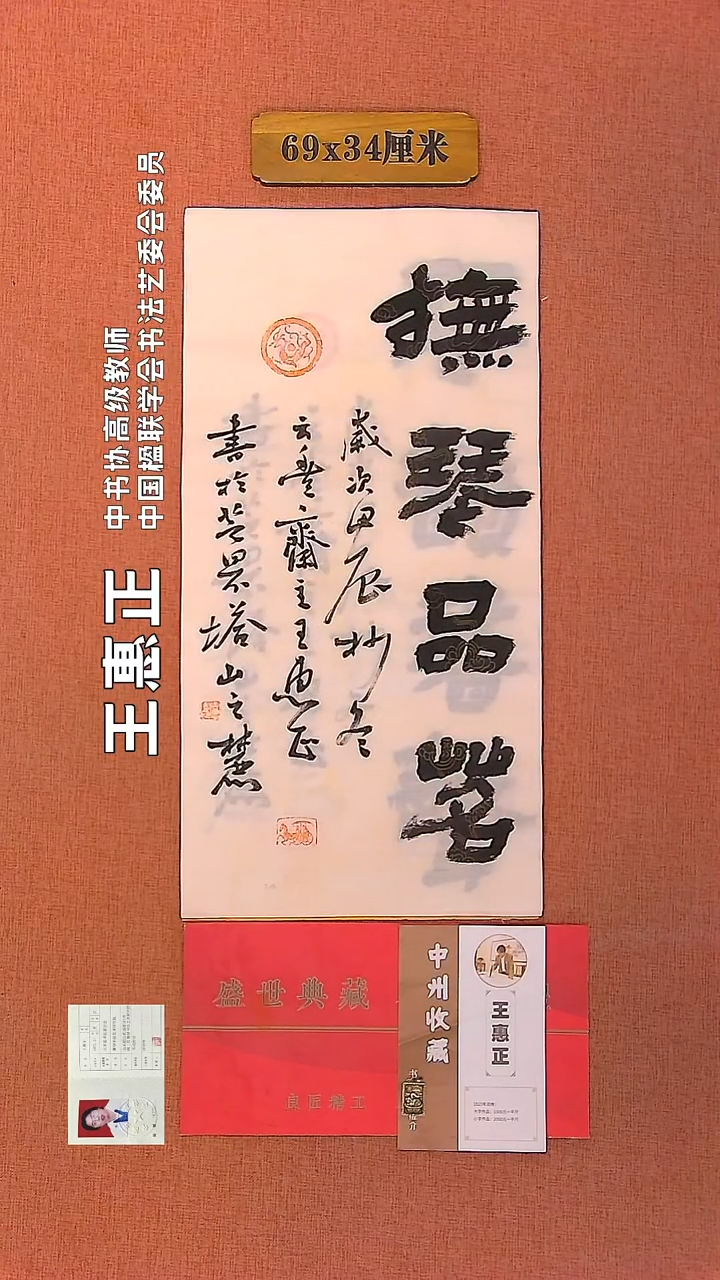 69x34厘米
撫琴品茗
歲次甲辰杪冬
云隺齋主王惠正
書於芒果塔山之麓
王惠正
中书协高级教师
中国楹联学会书法艺委会委员
盛世典藏
良匠精工
中州收藏
王惠正